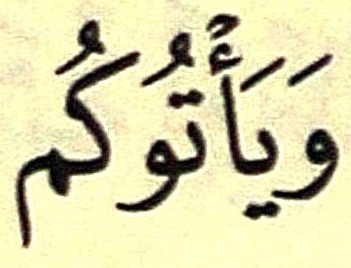 وَيَأْتُوكُم